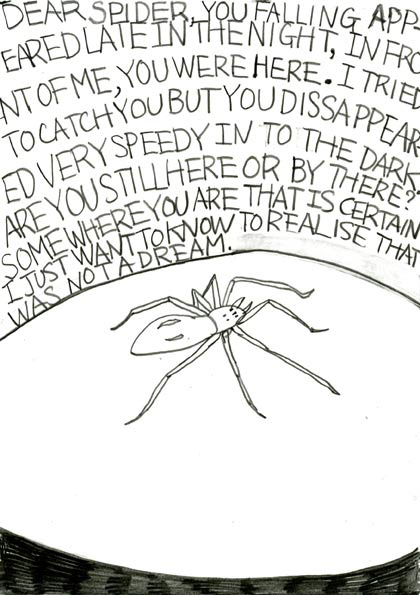 DEAR SPIDER, YOU FALLING APP
EARED LATE IN THE NIGHT, IN FRO
NT OF ME, YOU WERE HERE. I TRIED
TO CATCH YOU BUT YOU DISSAPPEAR
ED VERY SPEEDY IN TO THE DARK
ARE YOU STILL HERE OR BY THERE?
SOMEWHERE YOU ARE THAT IS CERTAIN
I JUST WANT TO KNOW TO REALISE THAT
WAS NOT A DREAM.